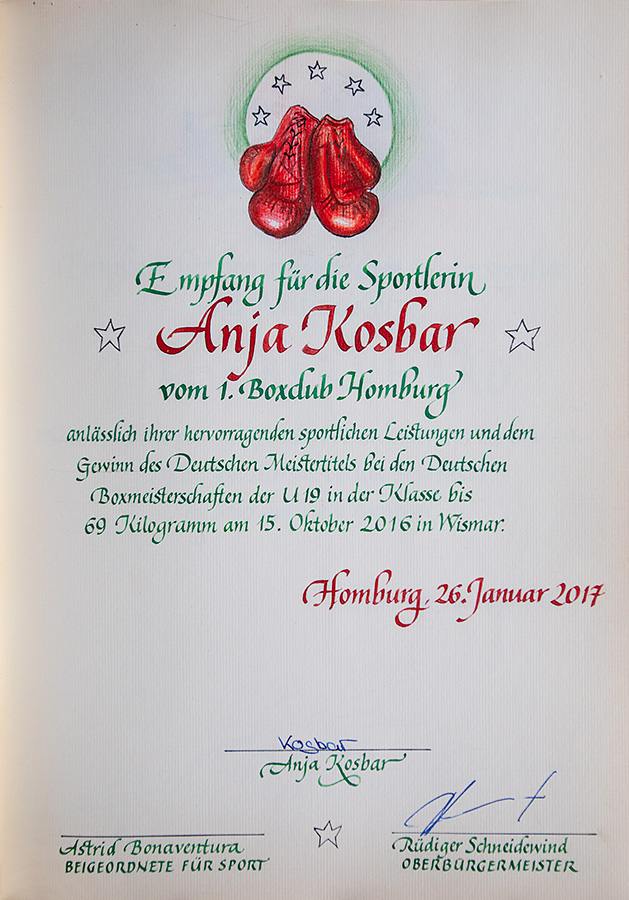 Empfang für die Sportlerin
Anja Kosbar
vom 1. Boxclub Homburg
anlässlich ihrer hervorragenden sportlichen Leistungen und dem
Gewinn des Deutschen Meistertitels bei den Deutschen
Boxmeisterschaften der U 19 in der Klasse bis
69 Kilogramm am 15. Oktober 2016 in Wismar.
Homburg, 26. Januar 2017
Kosbar
Anja Kosbar
Astrid Bonaventura
BEIGEORDNETE FÜR SPORT
Rüdiger Schneidewind
OBERBÜRGERMEISTER